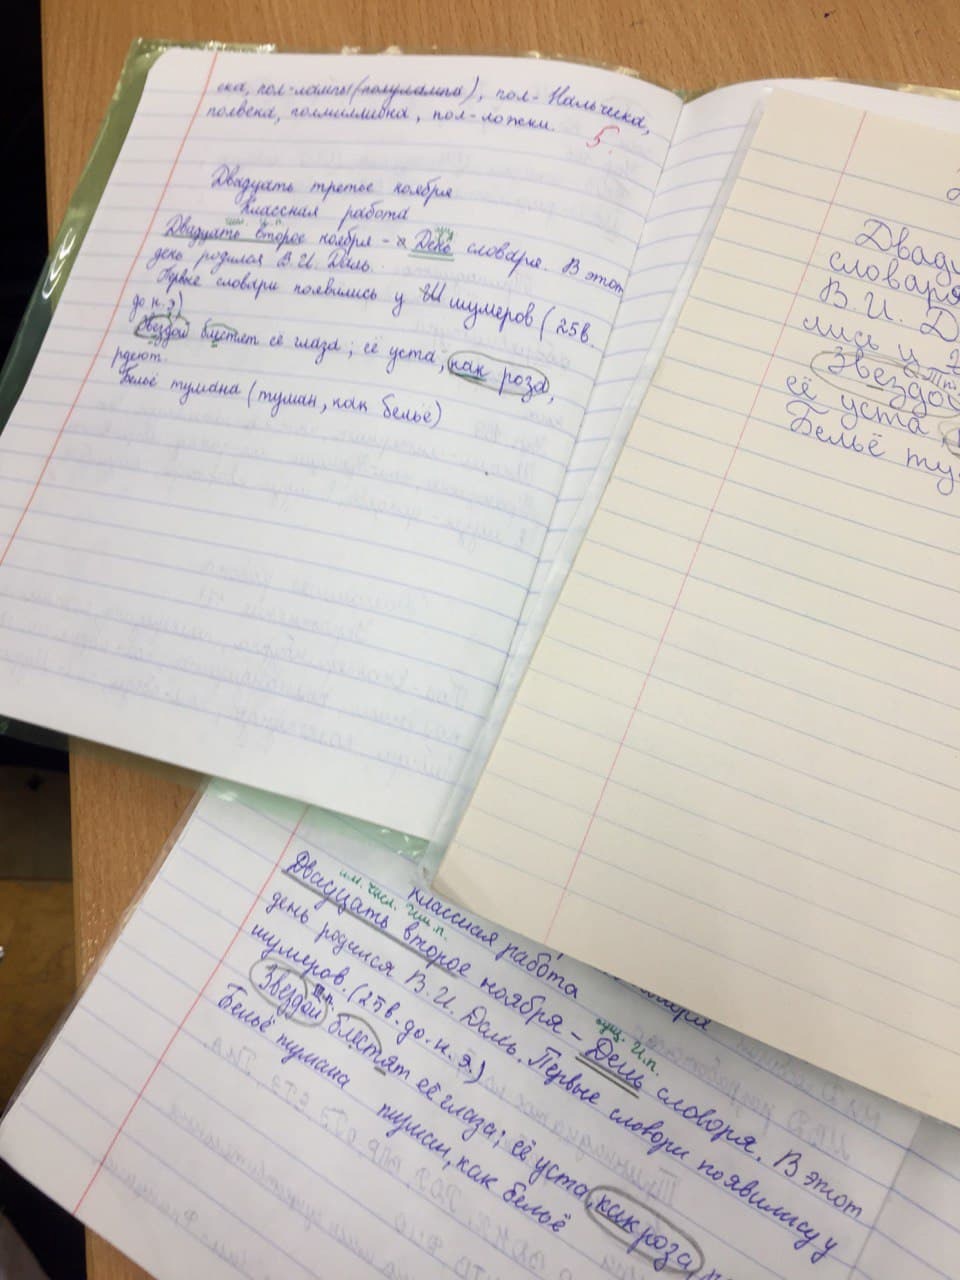 ека, пол-лампы (полулампа), пол-Нальчика,
полвека, полмиллиона, пол-ложки.
5
Двадцать третье ноября
Классная работа
Двадцать второе ноября - День словаря. В этот
день родился В. И. Даль.
Первые словари появились у шумеров (25 в.
до н. э)
Звездой блестят её глаза; её уста, как роза,
рдеют.
Бельё тумана (туман, как бельё)
Двад
словаря
В. И. Д
лись у
Звездой
её уста,
Бельё ту
классная работа
им. числ. им. п.
Двадцать второе ноября -
сущ. И. п.
День словаря. В этот
день родился В. И. Даль. Первые словари появились у
шумеров. (25 в. до. н. э.)
Тп.
Звездой блестят её глаза; её уста, как роза,
Бельё тумана туман, как бельё